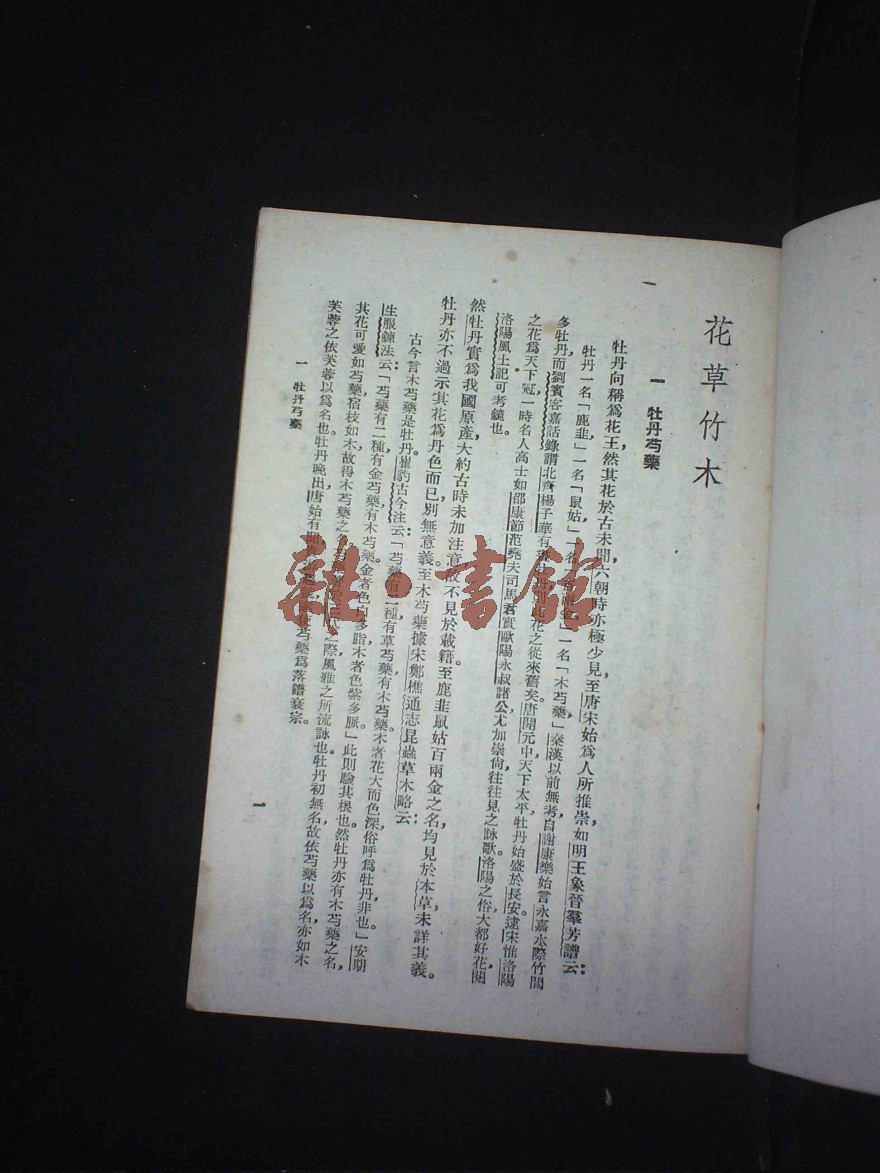 花草竹木
一 牡丹芍藥
牡丹向稱爲花王，然其花於古未聞，六朝時亦極少見，至唐宋始爲人所推崇，如明王象晉羣芳譜云：
牡丹一名「鹿韭」，一名「鼠姑」，一名「百兩金」，一名「木芍藥」，秦漢以前無考，自謝康樂始言永嘉水際竹間
多牡丹，而劉賓客嘉話錄謂北齊楊子華有畫牡丹，則此花之從來舊矣。唐開元中天下太平，牡丹始盛於長安，逮宋惟洛陽
之花爲天下冠，一時名人高士，如邵康節范堯夫司馬君實歐陽永叔諸公，尤加崇尙，往往見之詠歌。洛陽之俗，大都好花，閱
洛陽風土記可考鏡也。
然牡丹實爲我國原產，大約古時未加注意，故不見於載籍。至鹿韭鼠姑百兩金之名，均見於本草，未詳其義。
牡丹亦不過示其花爲丹色而已，別無意義。至木芍藥據宋鄭樵通志昆蟲草木略云：
古今言木芍藥是牡丹。崔豹古今注云：「芍藥有二種，有草芍藥，有木芍藥。木者花大而色深，俗呼爲牡丹，非也。」安期
生服鍊法云：「芍藥有二種，有金芍藥，有木芍藥。金者色白多脂，木者色紫多脈。」此則驗其根也。然牡丹亦有木芍藥之名，
其花可愛如芍藥，宿枝如木，故得木芍藥之 之際，風雅之所流詠也。牡丹初無名，故依芍藥以爲名，亦如木
芙蓉之依芙蓉以爲名也。牡丹晚出，唐始有聞 芍藥爲落譜衰宗。
一 牡丹芍藥
一
雜·書館